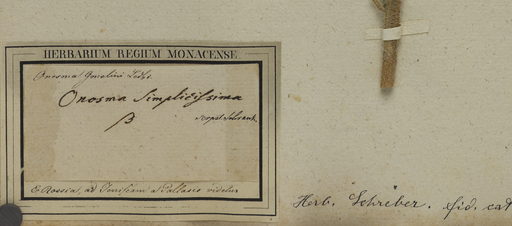 HERBARIUM REGIUM MONACENSE
Onosma Gmelini Ledb.
Onosma Simplicissima
β scrpsit Schrank
E Rossia, ad Jeniseam a Pallasio videtur
Herb. Schreber. fid. cat